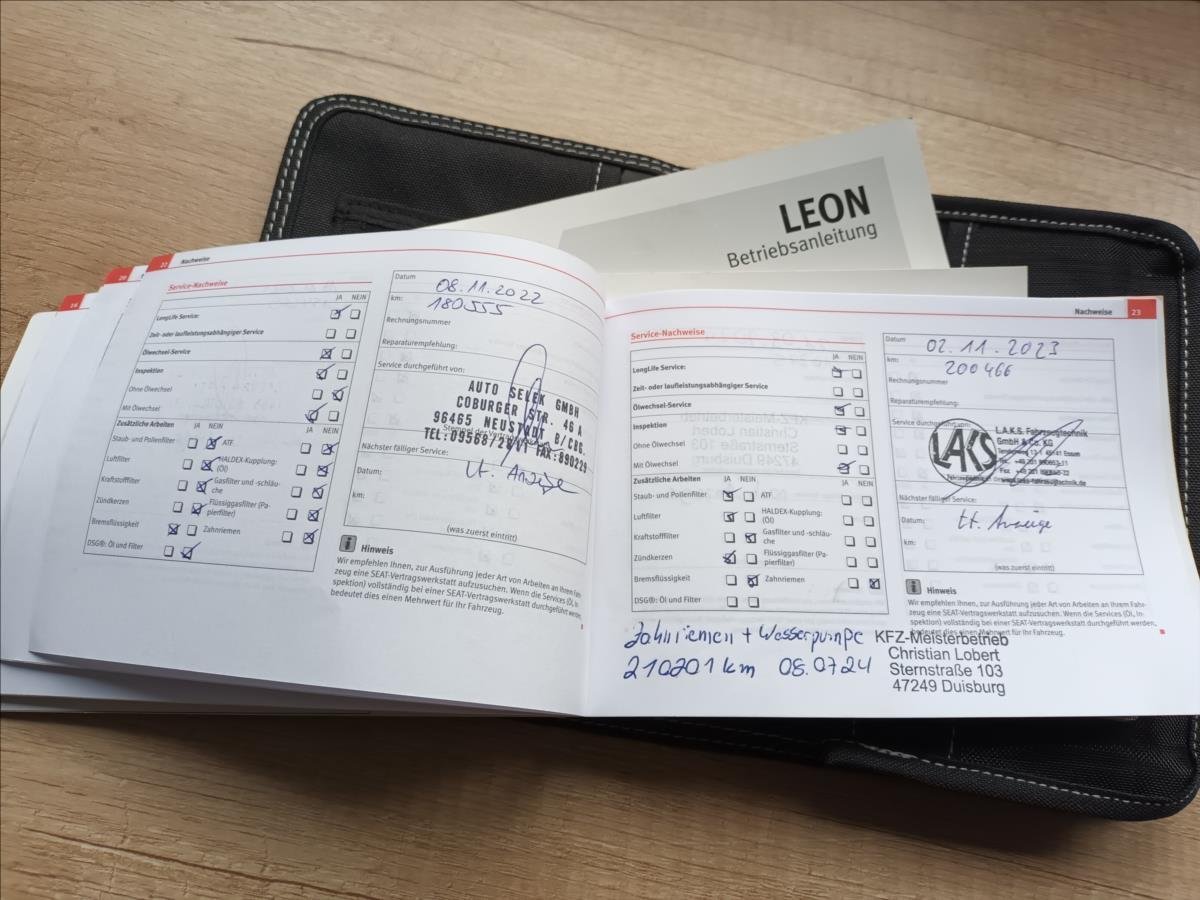 LEON
Betriebsanleitung
20
22
Nachweise
Service-Nachweise
JA NEIN
LongLife Service:
Zeit- oder laufleistungsabhängiger Service
Ölwechsel-Service
Inspektion
Ohne Ölwechsel
Mit Ölwechsel
Zusätzliche Arbeiten JA NEIN JA NEIN
Staub- und Pollenfilter ATF
Luftfilter HALDEX-Kupplung: (Öl)
Kraftstofffilter Gasfilter und -schläuche
Zündkerzen Flüssiggasfilter (Papierfilter)
Bremsflüssigkeit Zahnriemen
DSG®: Öl und Filter
Datum 08.11.2022
km: 180555
Rechnungsnummer
Reparaturempfehlung:
Service durchgeführt von:
AUTO SELEK GMBH
COBURGER STR. 46 A
96465 NEUSTADT B/CBG.
Nächster fälliger Service:
lt. Anzeige
Datum:
km:
(was zuerst eintritt)
Hinweis
Wir empfehlen Ihnen, zur Ausführung jeder Art von Arbeiten an Ihrem Fahr-
zeug eine SEAT-Vertragswerkstatt aufzusuchen. Wenn die Services (Öl, In-
spektion) vollständig bei einer SEAT-Vertragswerkstatt durchgeführt werden,
bedeutet dies einen Mehrwert für Ihr Fahrzeug.
Nachweise 23
Service-Nachweise
JA NEIN
LongLife Service:
Zeit- oder laufleistungsabhängiger Service
Ölwechsel-Service
Inspektion
Ohne Ölwechsel
Mit Ölwechsel
Zusätzliche Arbeiten JA NEIN JA NEIN
Staub- und Pollenfilter ATF
Luftfilter HALDEX-Kupplung: (Öl)
Kraftstofffilter Gasfilter und -schläuche
Zündkerzen Flüssiggasfilter (Papierfilter)
Bremsflüssigkeit Zahnriemen
DSG®: Öl und Filter
Datum 02.11.2023
km: 200466
Rechnungsnummer
Reparaturempfehlung:
Service durchgeführt von:
LAKS
L.A.K.S. Fahrzeugtechnik
GmbH & Co. KG
Nächster fälliger Service:
Datum: lt. Anzeige
km:
(was zuerst eintritt)
Hinweis
Wir empfehlen Ihnen, zur Ausführung jeder Art von Arbeiten an Ihrem Fahr-
zeug eine SEAT-Vertragswerkstatt aufzusuchen. Wenn die Services (Öl, In-
spektion) vollständig bei einer SEAT-Vertragswerkstatt durchgeführt werden,
bedeutet dies einen Mehrwert für Ihr Fahrzeug.
Zahnriemen + Wasserpumpe
210201 km 08.07.24
KFZ-Meisterbetrieb
Christian Lobert
Sternstraße 103
47249 Duisburg